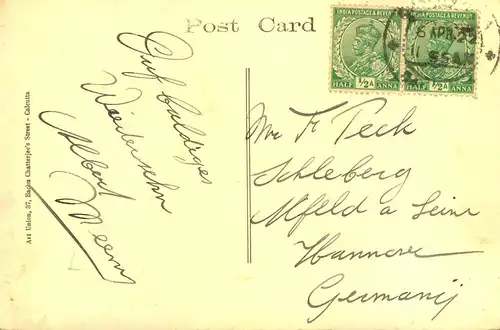 Post Card
INDIA POSTAGE & REVENUE
½A
HALF ANNA
INDIA POSTAGE & REVENUE
½A
HALF ANNA
6 APR. 35
Auf baldiges
Wiedersehn
Albert
Art Union, 37, Bagha Chatterjee's Street - Calcutta
Mr Fr Peck
Schleberg
Alfeld a Leine
Hannover
Germany